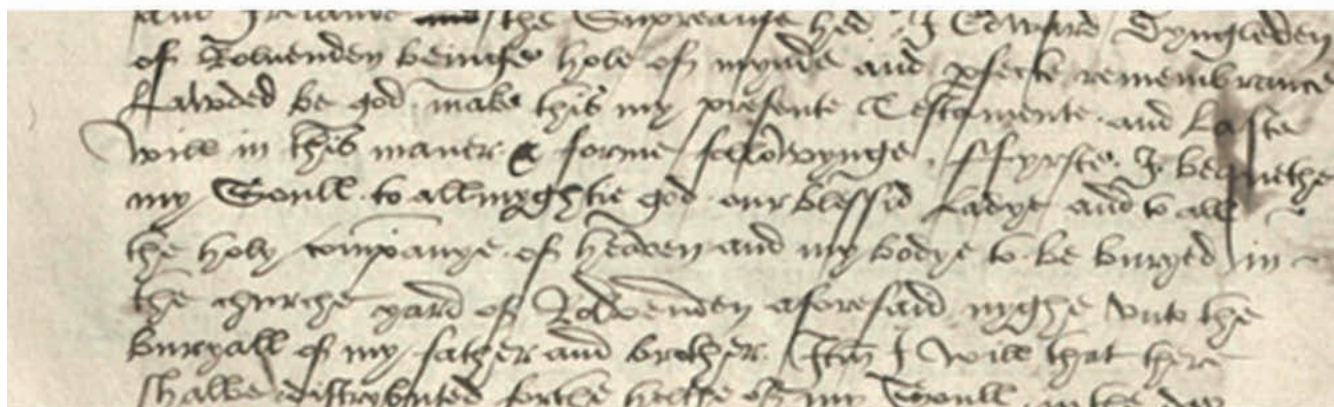 and Irelande the Supreame hed. I Edward Dyngleden
of Rolvenden beinge hole of mynde and pfecte remembrance
Lawded be god make this my presente Testamente and Laste
will in this maner & forme followynge. ffyrste I bequethe
my Soull to allmyghtie god our blessid Ladye and to all
the holy companye of heaven and my bodye to be buryed in
the churche yard of Rolvenden aforesaid nyghe unto the
buryall of my father and brother. Itm I will that there
shalbe distrybuted for the helthe of my Soull in the day